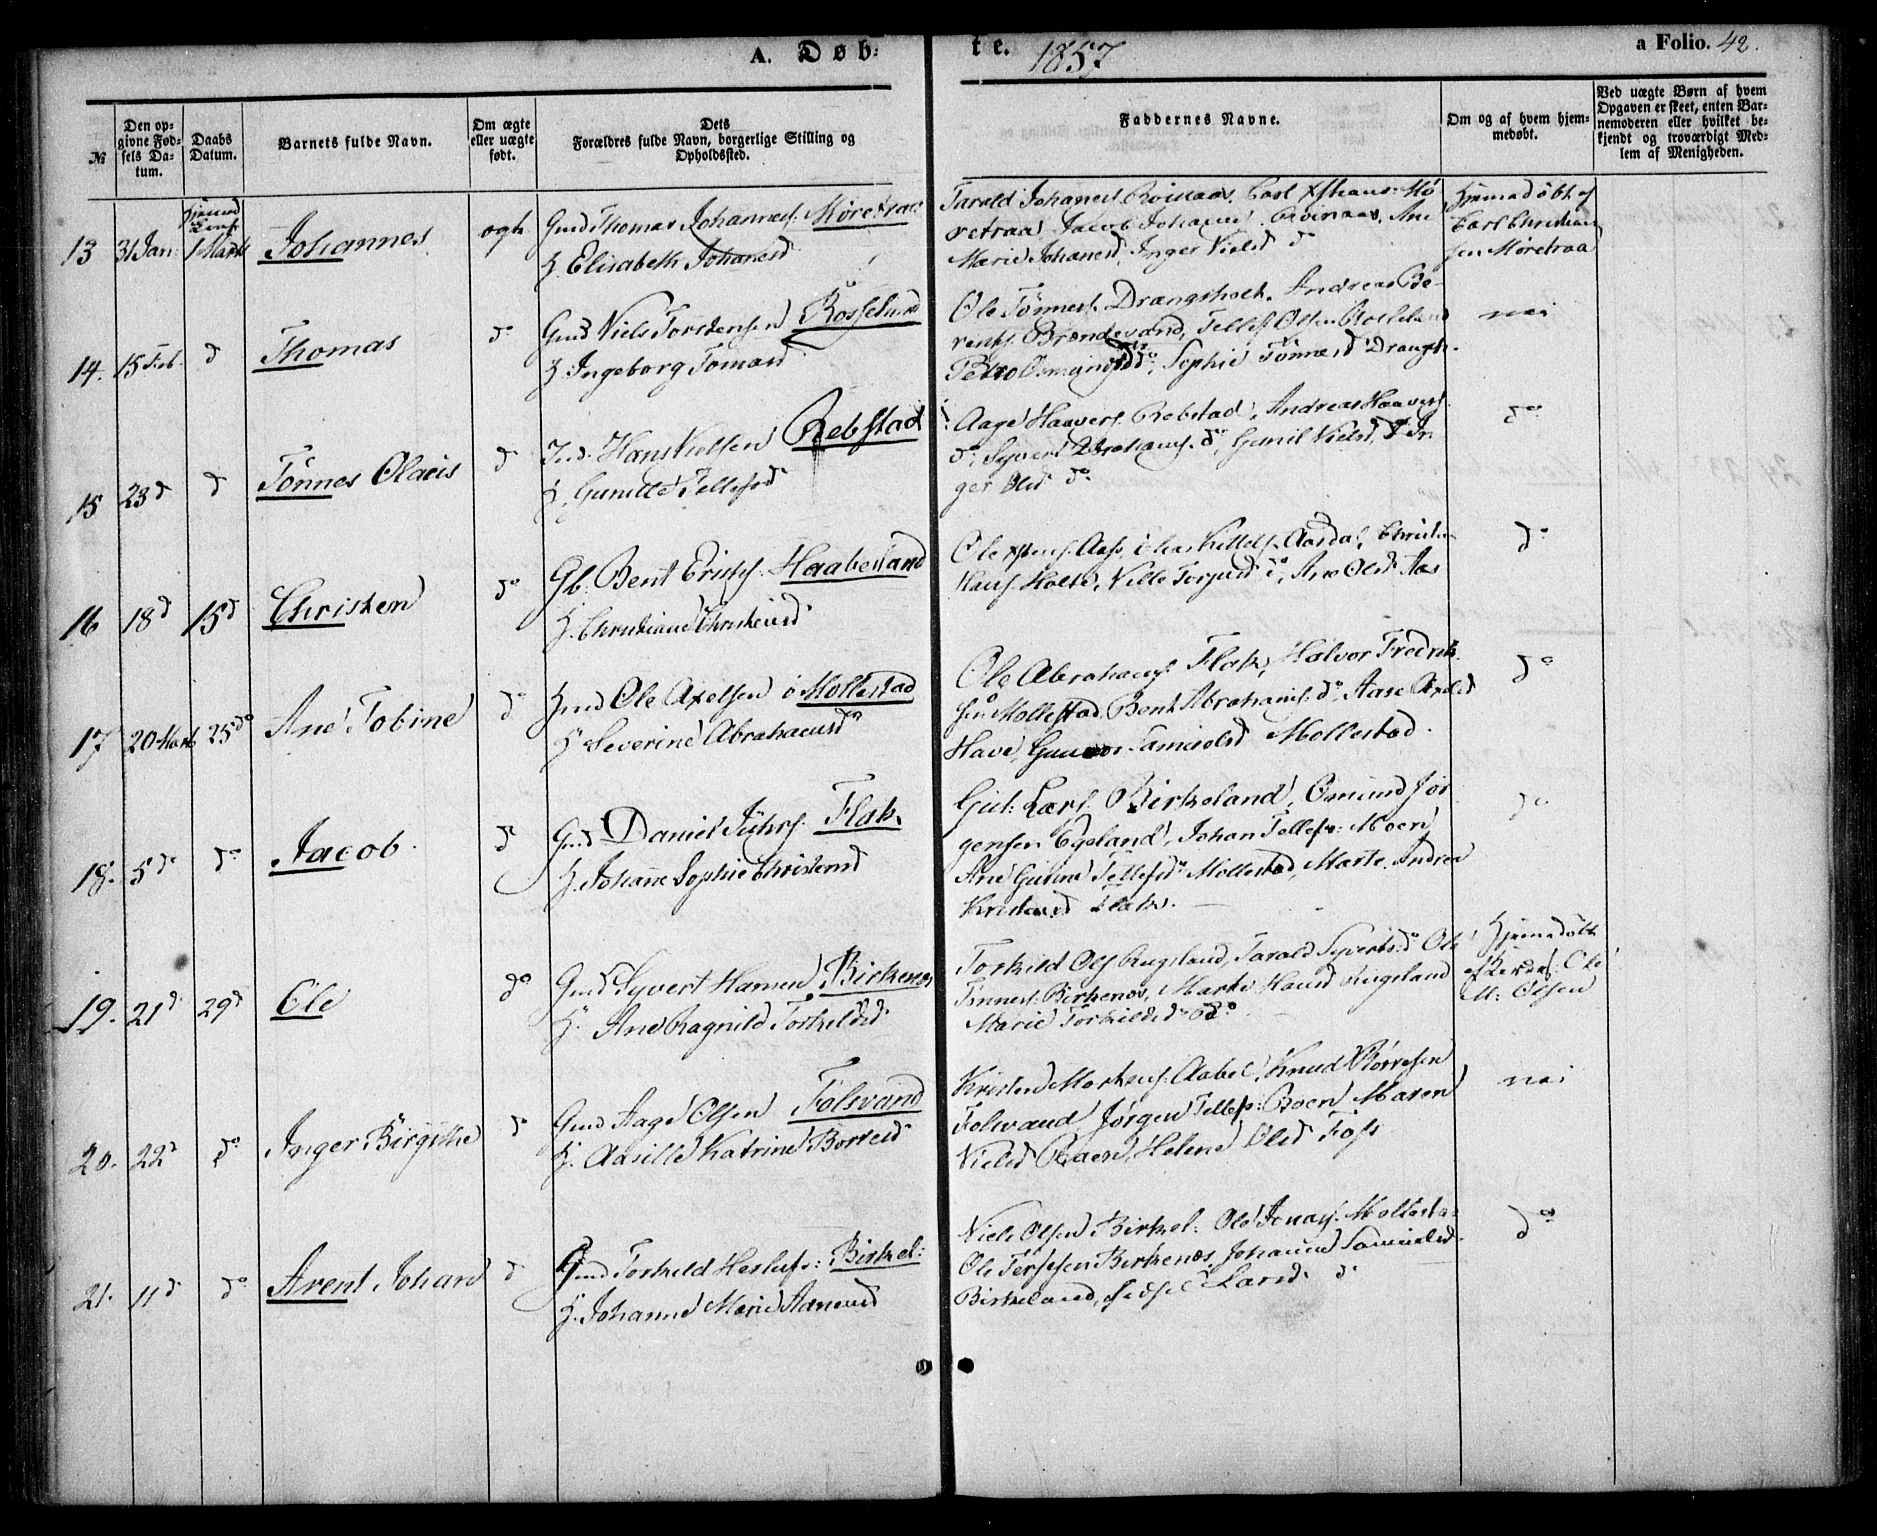 A. Døb:
te. 1857
a Folio. 42.
№
Den opgivne Fødsels Datum.
Daabs Datum.
Barnets fulde Navn.
Om ægte eller uægte født.
Dets Forældres fulde Navn, borgerlige Stilling og Opholdssted.
Faddernes Navne.
Om og af hvem hjemmedøbt.
Ved uægte Børn af hvem Opgaven er skeet, enten Barnemoderen eller hvilket bekjendt og troværdigt Medlem af Menigheden.
13 31 Jan: 1 Marts Johannes ægte Gmd Thomas Johannesf. Møretraa
H. Elisabeth Johansd
Tarald Johannesf. Carl Xstians: Møretraa Jacob Johannesf. Ane
Marie Johansd, Inger Nielsd do
Hjemmedøbt af
Carl Christiansen Møretraa
14. 15 Feb. d Thomas do Gmd Niels Torstensen Rosseland
H. Ingeborg Tomasd
Ole Tønnesf. Drangsholt, Andreas Berentf. Brøndevand, Tellef Olsen Rosseland
Sophie Tønnesd Drangsh.
nei
15 23 d d Tønnes Olaus d Ind. Hans Nielsen Rebstad
H. Gunille Tellefsd
Aage Haaversf. Rebstad, Andreas Haaversf.
do, Syvert Abrahamsf. do, Gunil Nielsd, d Inger Olsd do
do
16 18 d 15 d Christen do Gb. Bent Erichsf. Haabesland
H. Christiane Christensd
Ole Xstensf. Aas, Kittelsf. Aasdal, Christen
Hansf. Holte, Nille Torjusd do, Ane Olsd Aas
do
17 20 Marts 25 do Ane Tobine do Hmd Ole Axelsen Mollestad
H. Severine Abrahamsd
Ole Abrahamsf. Flak, Halvor Fredriksen Mollestad, Bent Abrahamsf. do, Aase Axelsd
Have, Gunvor Samuelsd Mollestad.
do
18. 5 do do Jacob d Gmd Daniel Flak
H. Johanne Sophie Christensd
Gul: Larsf. Birkeland, Omund Jørgensen Egeland, Johan Tellefs: Moen
Ane Gurine Tellefsd Mollestad, Marte Andrea
Kristensd Flak.
do
19. 21 d. 29 d Ole do Gmd Syvert Hansen Birkenes
H. Ane Ragnild Torkildsd
Torkild Olsf Rugsland, Tarald Syvertsf. do Ole
Tønnesf. Birkenes, Marte Hansd Rugsland
Marie Torkildsd do
Hjemmedøbt
af Ole
M: Olsen
20. 22 d do Inger Birgithe d Gmd Aage Olsen Følsvand
H. Aasille Katrine Børresd
Kristen Mortensf. Aabel, Knud Børresen
Følsvand, Jørgen Tellefs: Boen, Maren
Nielsd Boen, Helene Olsd Foss
nei
21. 11 d do Arent Johan d Gmd Torkild Birkel:
H. Johanne Marie Aanensd
Niels Olsen Birkel: Ole Jonasf. Mollestad
Ole Terjesen Birkenes, Johanne Samuelsd.
Birkeland, Sidsel Larsd. do
do